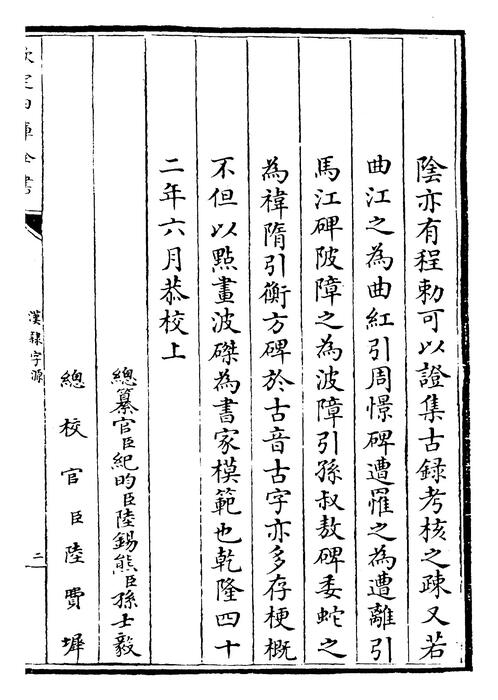 陰亦有程勅可以證集古録考核之疎又若
曲江之為曲紅引周憬碑遭罹之為遭離引
馬江碑陂障之為波障引孫叔敖碑委蛇之
為禕隋引衡方碑於古音古字亦多存梗概
不但以點畫波磔為書家模範也乾隆四十
二年六月恭校上
總纂官臣紀昀臣陸錫熊臣孫士毅
總校官臣陸費墀
欽定四庫全書
漢隸字源
二